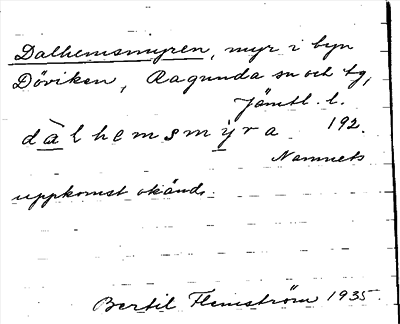 Dalhemsmyren, myr i byn
Döviken, Ragunda sn och tg,
Jämtl. l.
dàlhemsmýra 192.
Namnets
uppkomst okänd.
Bertil Flemström 1935.